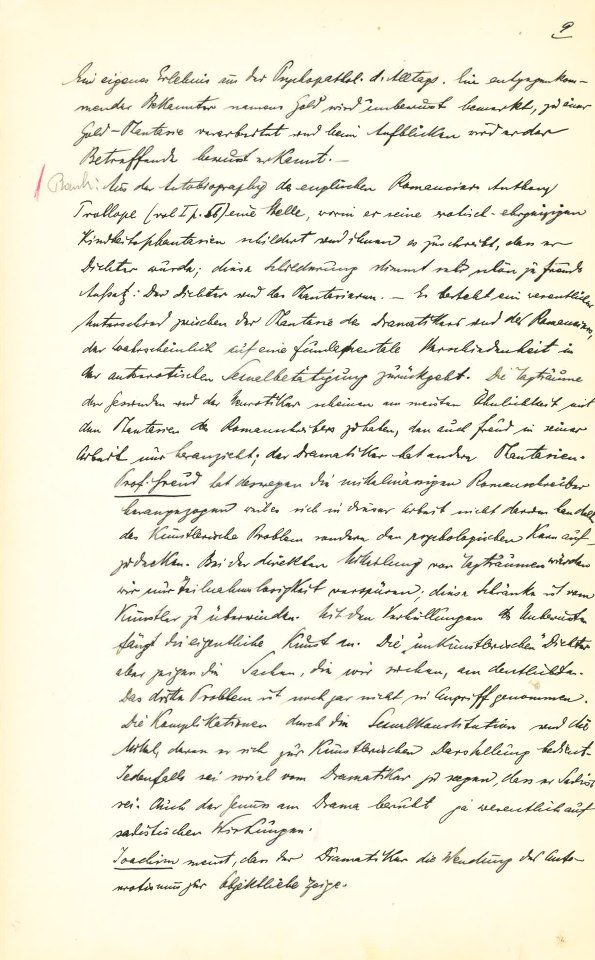 9
Ein eigenes Erlebnis aus der Psychopathol. d. Alltags. Ein entgegenkom-
mender Bekannter namens Gold wird unbewusst bemerkt, zu einer
Gold-Phantasie verarbeitet und beim Aufblicken wird er der
Betreffende bewusst erkannt. —
Rank: Aus der Autobiography des englischen Romanciers Anthony
Trollope (vol I p. 56) eine Stelle, worin er seine erotisch-ehrgeizigen
Kindheitsphantasien schildert und ihnen es zuschreibt, dass er
Dichter wurde; diese Schilderung stimmt sehr schön zu Freuds
Aufsatz: Der Dichter und das Phantasieren. — Es besteht ein wesentlicher
Unterschied zwischen der Phantasie des Dramatikers und des Romanciers,
der wahrscheinlich auf eine fundamentale Verschiedenheit in
der autoerotischen Sexualbetätigung zurückgeht. Die Tagträume
der Gesunden und der Neurotiker scheinen am meisten Ähnlichkeit mit
den Phantasien des Romanschreibers zu haben, den auch Freud in seiner
Arbeit nur heranzieht; der Dramatiker hat andere Phantasien.
Prof. Freud hat deswegen die mittelmässigen Romanschreiber
herangezogen weil es sich in dieser Arbeit nicht darum handelte
das künstlerische Problem sondern den psychologischen Kern auf-
zudecken. Bei der direkten Mitteilung von Tagträumen würden
wir nur Teilnahmslosigkeit verspüren; diese Schranke ist vom
Künstler zu überwinden. Mit den Verhüllungen des Unbewussten
fängt die eigentliche Kunst an. Die "unkünstlerischen" Dichter
aber zeigen die Sachen, die wir suchen, am deutlichsten.
Das dritte Problem ist noch gar nicht in Angriff genommen.
Die Komplikationen durch die Sexualkonstitution und die
Mittel, deren er sich zur künstlerischen Darstellung bedient.
Jedenfalls sei soviel vom Dramatiker zu sagen, dass er Sadist
sei. Auch der Genuss am Drama beruht ja wesentlich auf
sadistischen Wirkungen.
Joachim meint, dass der Dramatiker die Wendung des Auto-
erotismus zur Objektliebe zeige.